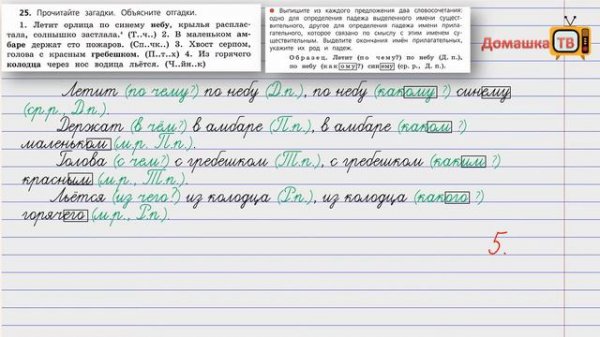 25. Прочитайте загадки. Объясните отгадки.
1. Летит орлица по синему небу, крылья распластала, солнышко застлала. (Т..ч..) 2. В маленьком амбаре держат сто пожаров. (Сп..чк..) 3. Хвост серпом, голова с красным гребешком. (П..т..х) 4. Из горячего колодца через нос водица льётся. (Ч..йн..к)
Выпишите из каждого предложения два словосочетания: одно для определения падежа выделенного имени существительного, другое для определения падежа имени прилагательного, которое связано по смыслу с этим именем существительным. Выделите окончания имён прилагательных, укажите их род и падеж.
Образец. Летит (по чему?) по небу (Д. п.), по небу (какому?) синему (ср. р., Д. п.).
Домашка ТВ
Летит (по чему?) по небу (Д.п.), по небу (какому ?) синему
(ср.р., Д.п.).
Держат (в чём?) в амбаре (П.п.), в амбаре (каком ?)
маленьком (м.р. П.п.).
Голова (с чем?) с гребешком (Т.п.), с гребешком (каким ?)
красным (м.р., Т.п.).
Льётся (из чего?) из колодца (Р.п.), из колодца (какого ?)
горячего (м.р., Р.п.).
5.